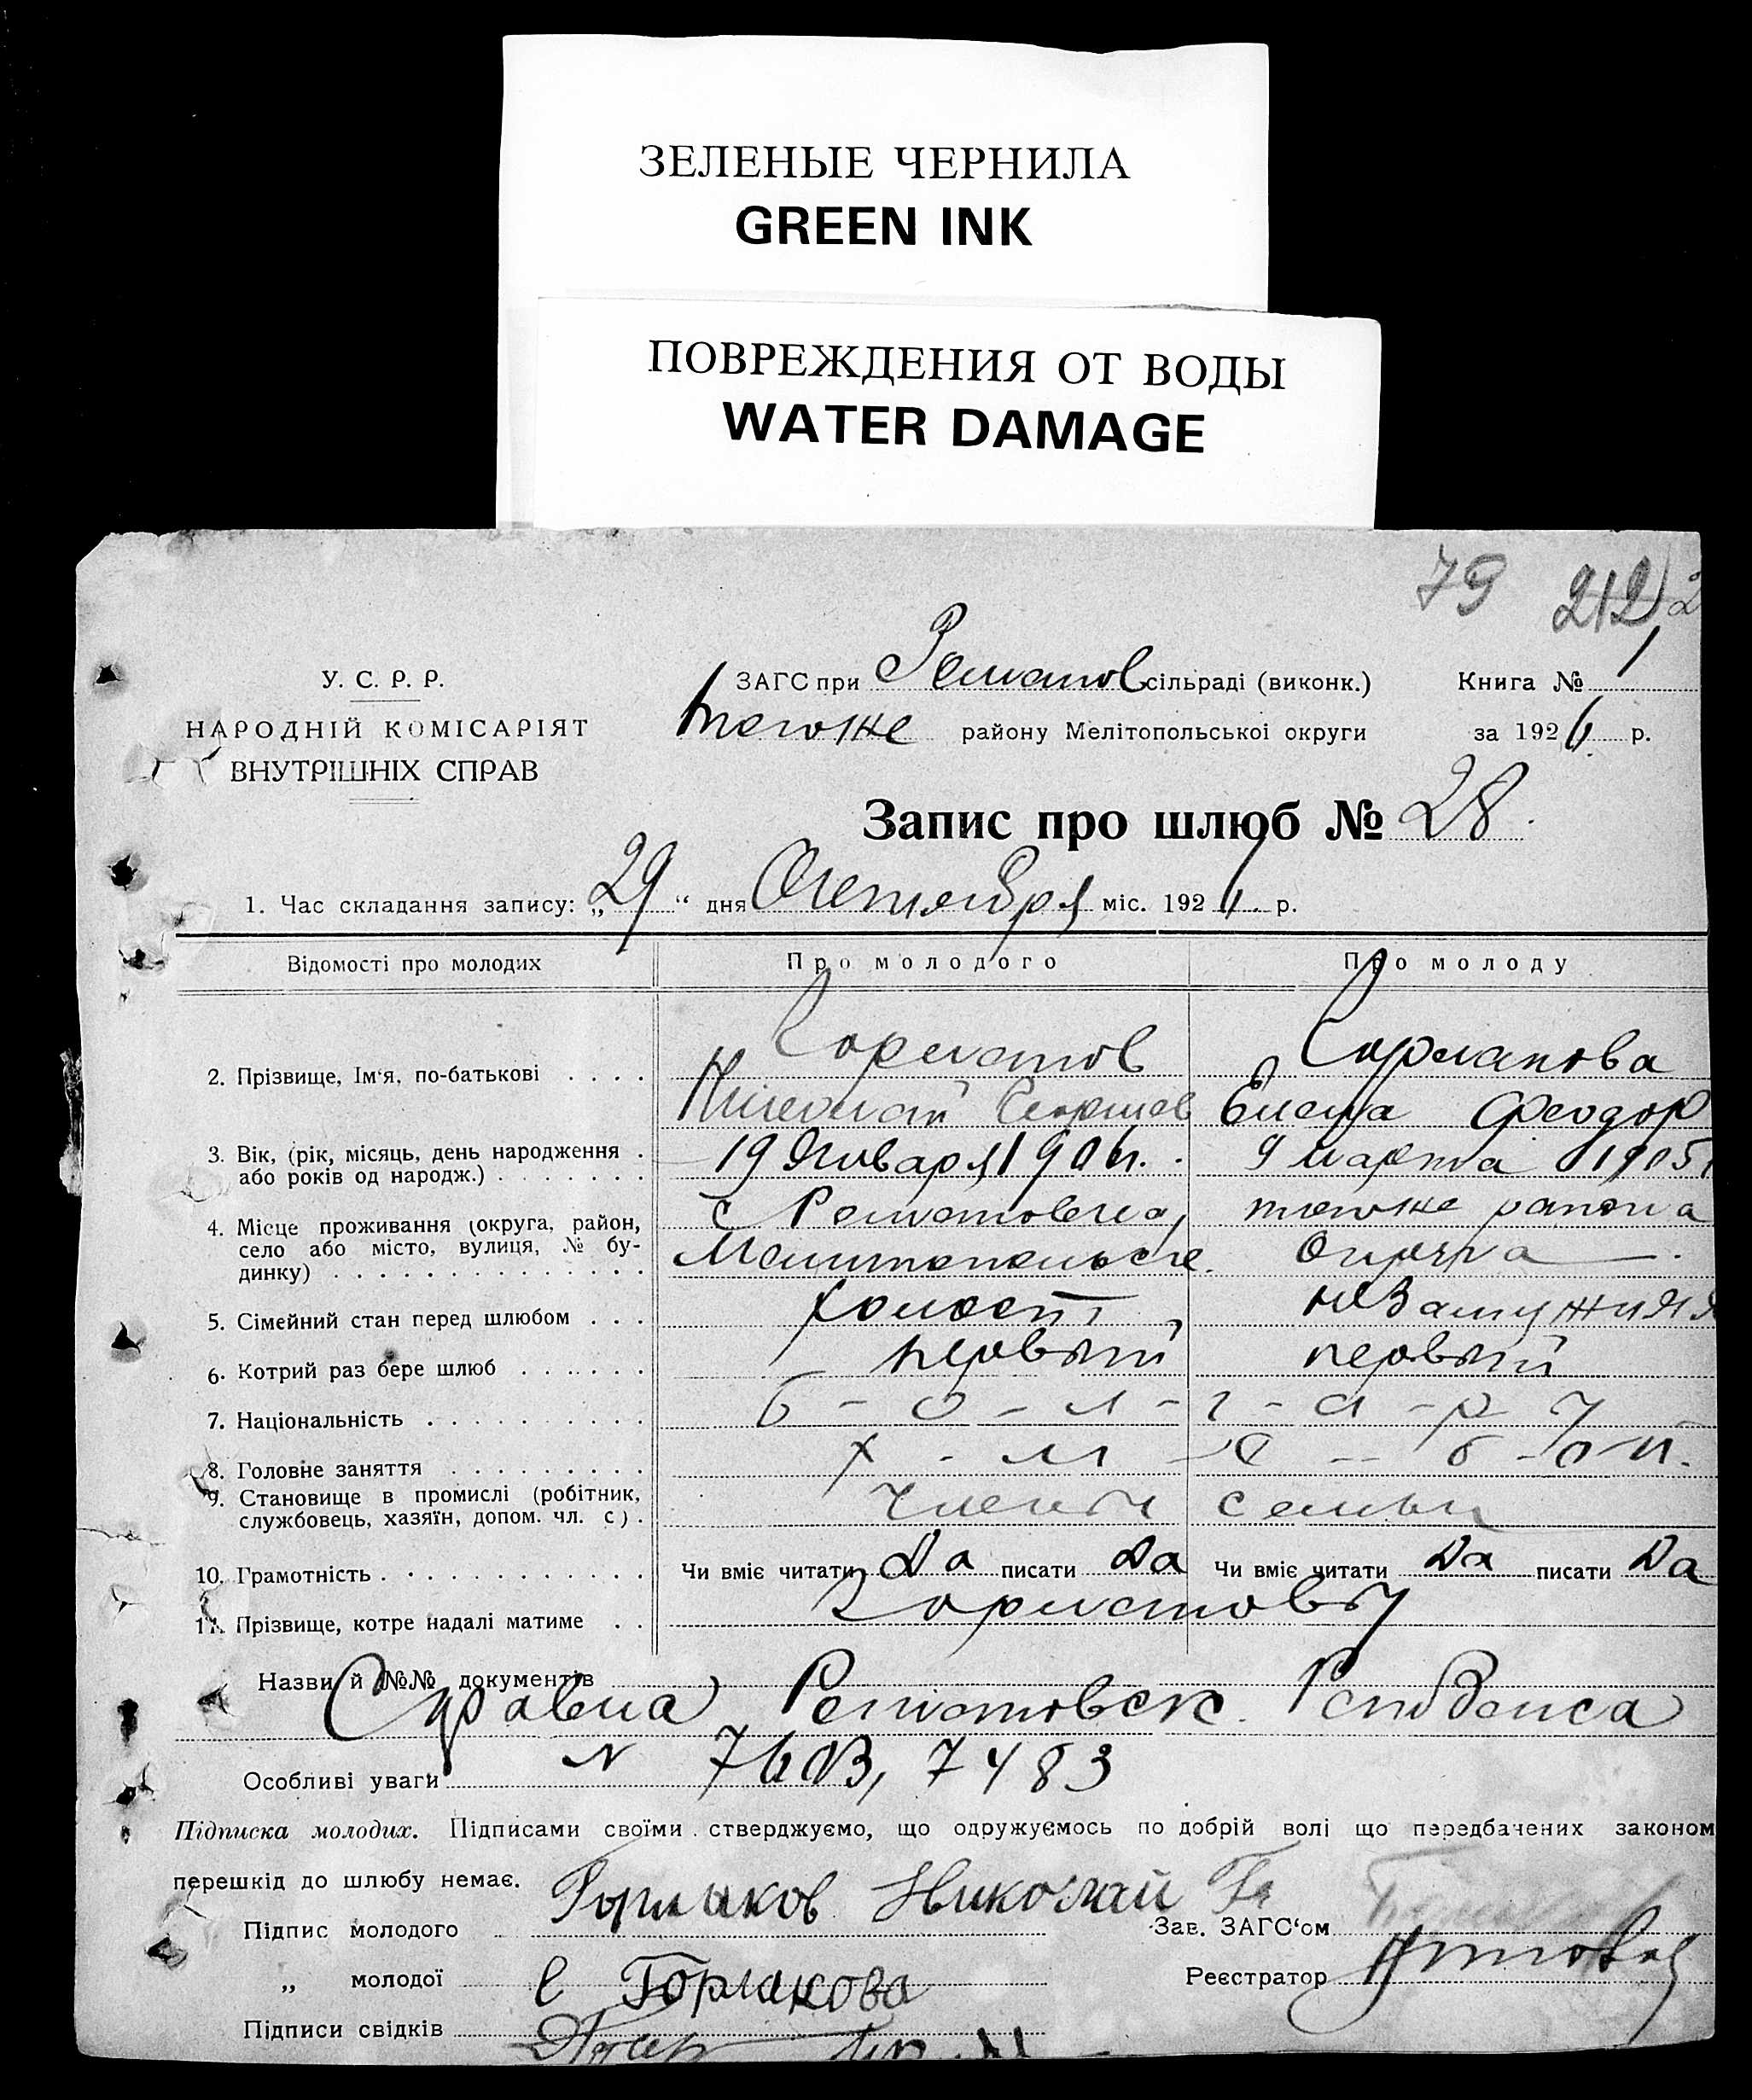 ЗЕЛЕНЫЕ ЧЕРНИЛА
GREEN INK
ПОВРЕЖДЕНИЯ ОТ ВОДЫ
WATER DAMAGE
79 212
У. С. Р. Р.
НАРОДНІЙ КОМІСАРІЯТ
ВНУТРІШНІХ СПРАВ
ЗАГС при сільраді (виконк.)
тогоже району Мелітопольскоі округи
Книга № 1
за 1926 р.
Запис про шлюб № 28.
1. Час складання запису: „29“ дня Октября міс. 192 р.
Відомості про молодих
Про молодого
Про молоду
2. Прізвище, Імʻя, по-батькові
Горманов
Николай Георгиев
Горманова
Елена Феодор
3. Вік, (рік, місяць, день народження
або років од народж.)
19 Января 1906г.
9 марта 1905
4. Місце проживання (округа, район,
село або місто, вулиця, № бу-
динку)
с
Мелитопольск.
тогоже района
Округа
5. Сімейний стан перед шлюбом
холост
незамужняя
6. Котрий раз бере шлюб
первый
первый
7. Національність
б - о - л - г - а - р ы
8. Головне заняття
9. Становище в промислі (робітник,
службовець, хазяїн, допом. чл. с).
члены семьи
10. Грамотність
Чи вміє читати Да писати Да
Чи вміє читати Да писати Да
11. Прізвище, котре надалі матиме
Гормановы
Назви й №№ документів
Справка
Особливі уваги
N 7483
Підписка молодих. Підписами своїми стверджуємо, що одружуємось по добрій волі що передбачених законом
перешкід до шлюбу немає.
Підпис молодого Гормаков Николай
Зав. ЗАГСʻом
„ молодої Е Гормакова
Реєстратор
Підписи свідків